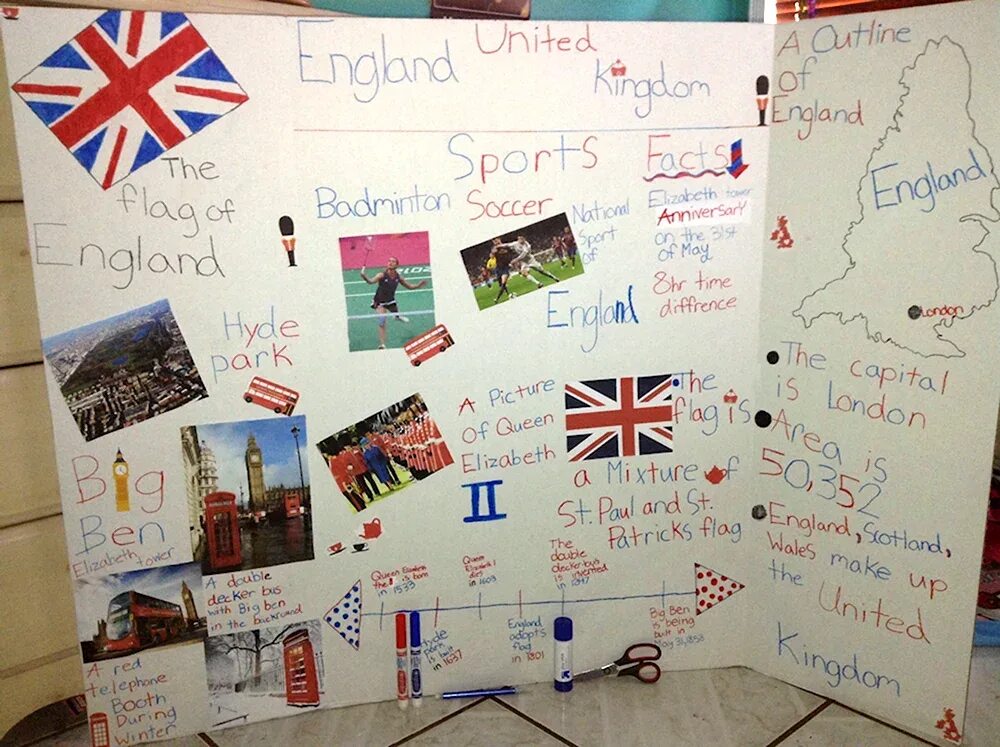 England United
Kingdom
The
flag of
England
Sports
Badminton
Soccer
National
Sport
of
England
Facts
Elizabeth tower
Anniversary
on the 31st
of May
8hr time
diffrence
Hyde
park
Big
Ben
Elizabeth tower
A Picture
of Queen
Elizabeth
II
The
flag is
a Mixture of
St. Paul and St.
Patricks flag
A double
decker bus
with Big ben
in the backround
A red
telephone
Booth
During
Winter
Queen Elizabeth
the
is born
in 1533
Queen
Elizabeth I
dies
in 1603
The
double
decker bus
is invented
in 1847
Hyde
park
is built
in 1637
England
adopts
flag
in 1801
Big Ben
is being
built in
May 31, 1858
A Outline
of
England
England
London
The capital
is London
Area is
50,352
England, Scotland,
Wales make up
the
United
Kingdom